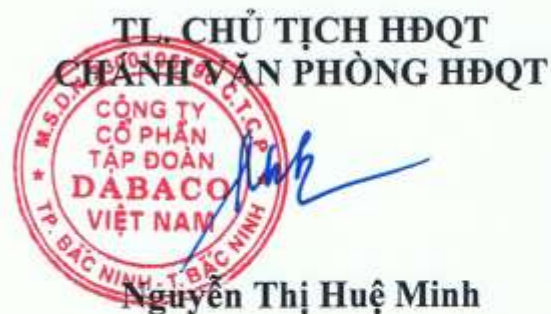 TL. CHỦ TỊCH HĐQT
CHÁNH VĂN PHÒNG HĐQT
CÔNG TY
CỔ PHẦN
TẬP ĐOÀN
DABACO
VIỆT NAM
TP. BẮC NINH - T. BẮC NINH
Nguyễn Thị Huệ Minh